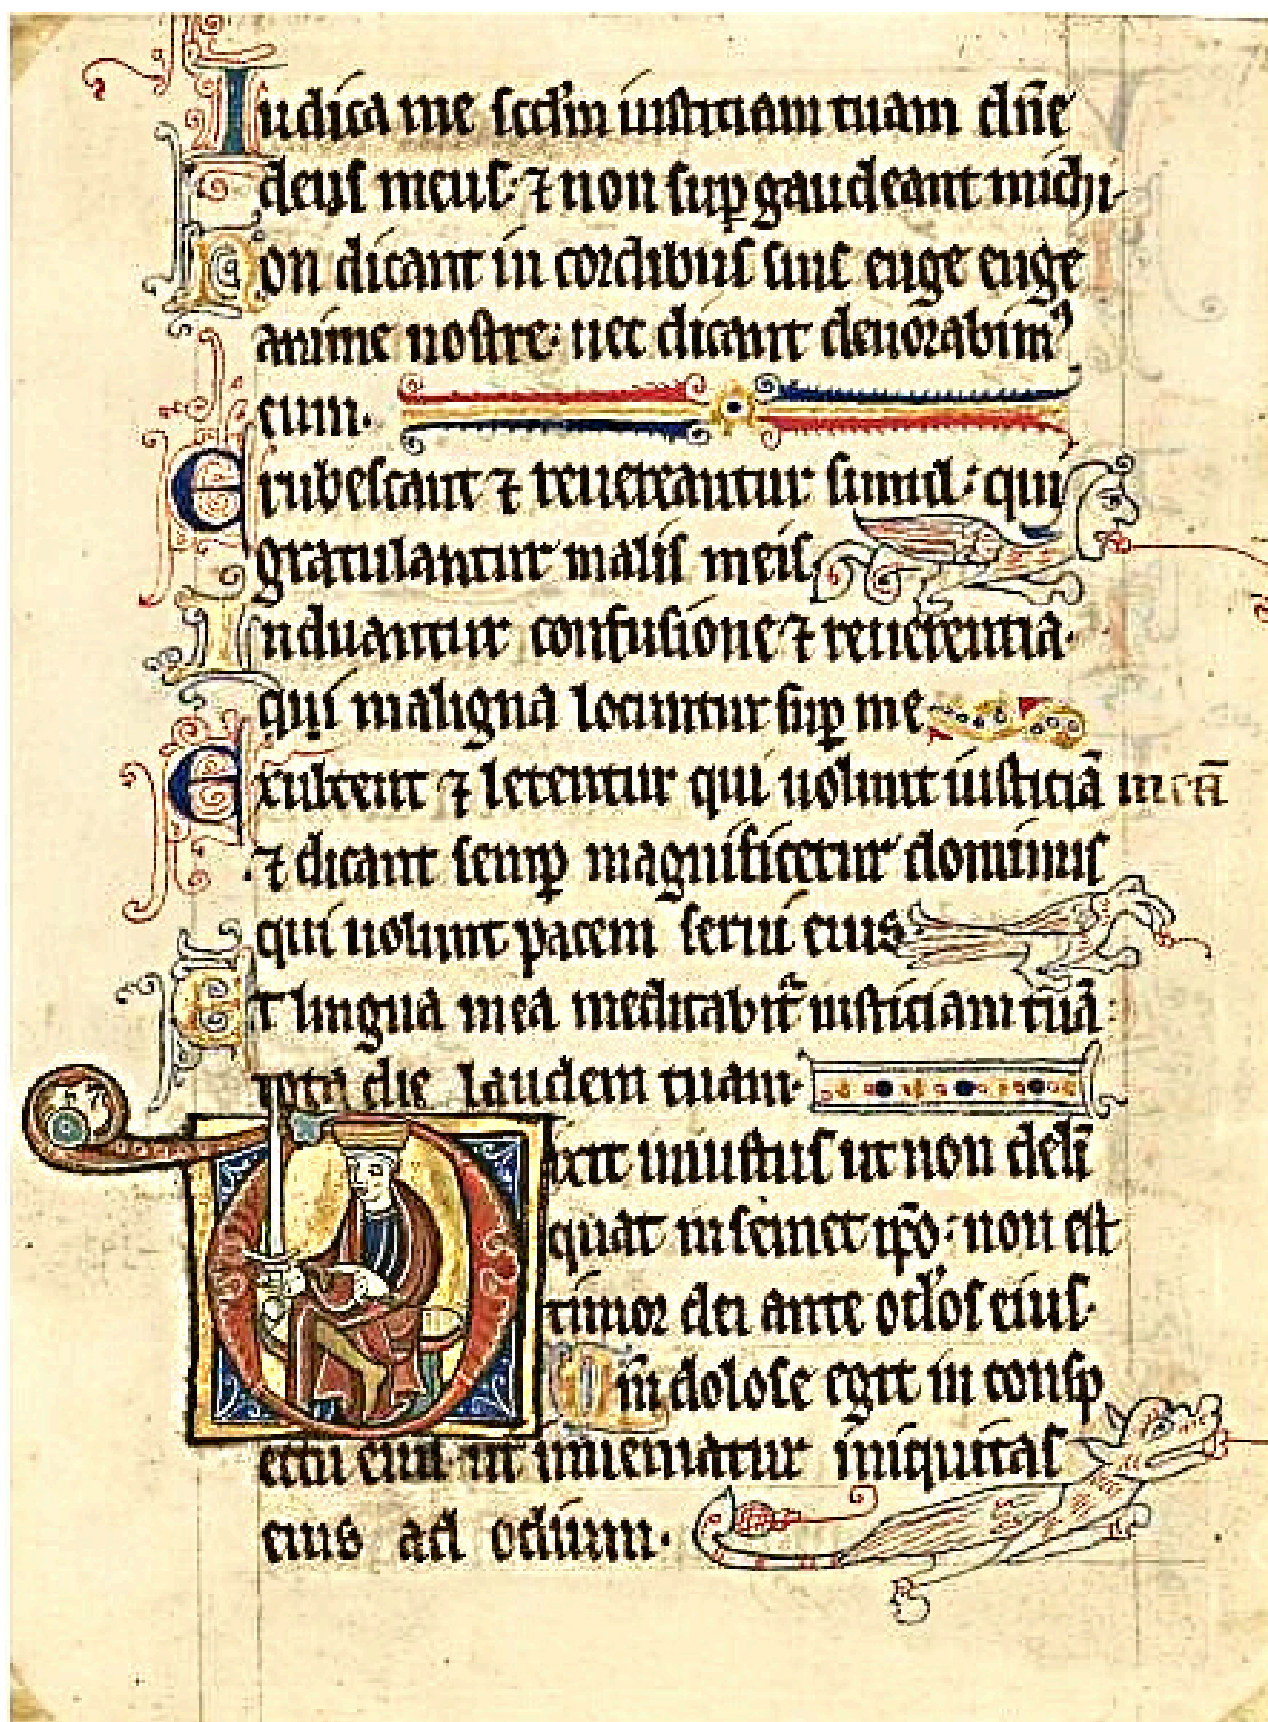 Iudica me scd̄m iusticiam tuam dn̄e
deus meus· ⁊ non suꝑgaudeant michi·
Non dicant in cordibus suis euge euge
anime nostre· nec dicant deuorabim⁹
eum·
Erubescant ⁊ reuereantur simul: qui
gratulantur malis meis
Induantur confusione ⁊ reuerentia·
qui maligna locuntur suꝑ me
Exultent ⁊ letentur qui uolunt iusticiā meā
⁊ dicant semꝑ magnificetur dominus
qui uolunt pacem serui eius
Et lingua mea meditabit᷑ iusticiam tuā
tota die laudem tuam·
Dixit iniustus ut non deliī
quat in semet ip̄o: non est
timor dei ante oc̄los eius·
Qm̄ dolose egit in consp
ectu eius· ut inueniatur iniquitas
eius ad odium·